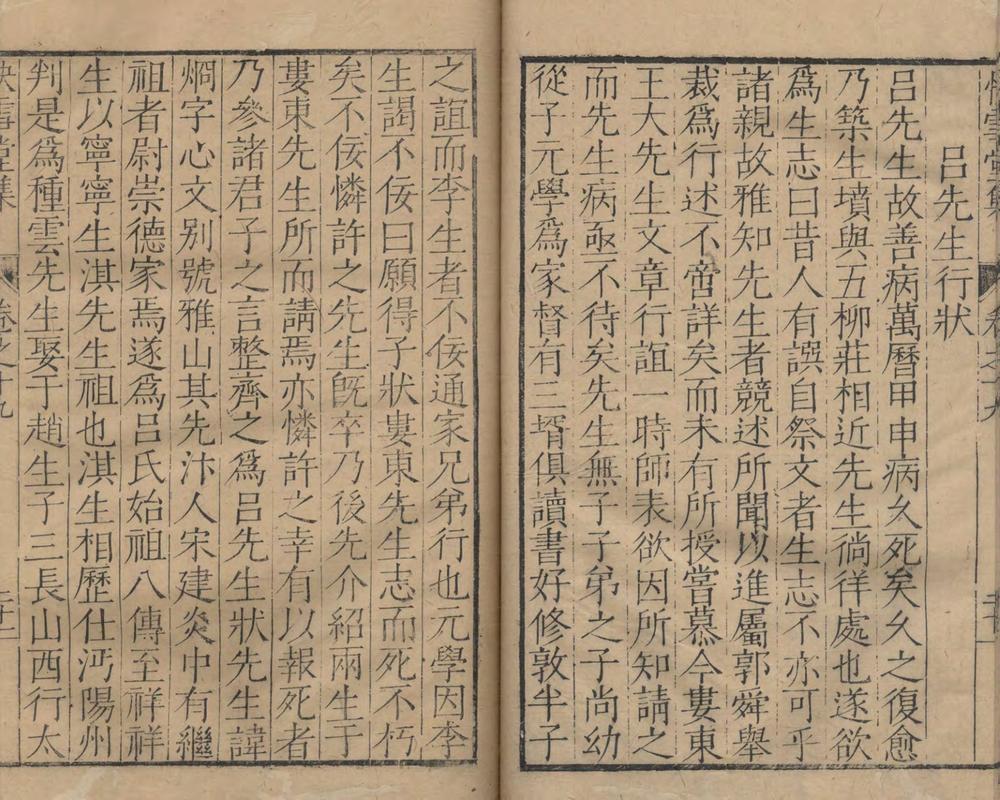 呂先生行狀
呂先生故善病萬曆甲申病久死矣久之復愈
乃築生墳與五柳莊相近先生徜徉處也遂欲
爲生志曰昔人有誤自祭文者生志不亦可乎
諸親故雅知先生者競述所聞以進屬郭舜舉
裁爲行述不啻詳矣而未有所授嘗慕今婁東
王大先生文章行誼一時師表欲因所知請之
而先生病亟不待矣先生無子子弟之子尚幼
從子元學爲家督有三壻俱讀書好修敦半子
之誼而李生者不佞通家兄弟行也元學因李
生謁不佞曰願得子狀婁東先生志而死不朽
矣不佞憐許之先生旣卒乃後先介紹兩生于
婁東先生所而請焉亦憐許之幸有以報死者
乃參諸君子之言整齊之爲呂先生狀先生諱
烱字心文别號雅山其先汴人宋建炎中有繼
祖者尉崇德家焉遂爲呂氏始祖八傳至祥祥
生以寧寧生淇先生祖也淇生相歷仕沔陽州
判是爲種雲先生娶于趙生子三長山西行太